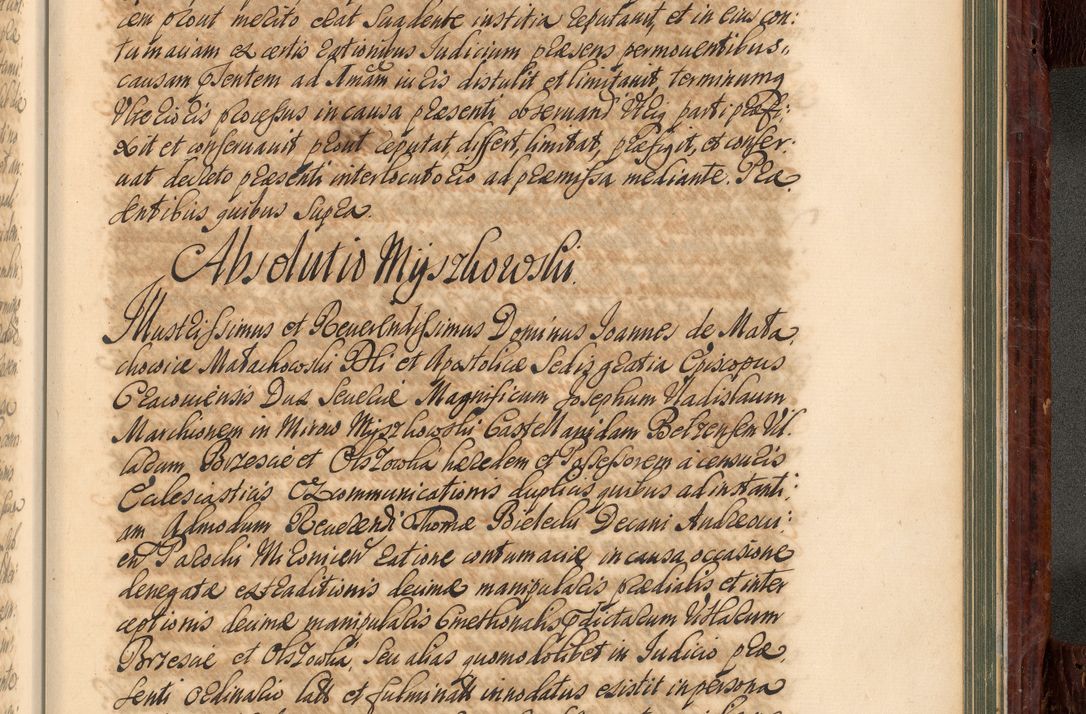 cem prout melito erat suadente iustitia reputavit, et in eius con:
tumaciam ex certis rationibus Judicium præsens permoventibus,
causam præsentem ad Imam iuris distulit et limitavit, terminumq
Ulterioris processus in causa præsenti observand Utriq parti præfi:
xit et conservavit prout reputat differt, limitat, præfigit, et conser:
vat decreto præsenti interlocutorio ad præmissa mediante. Præ
sentibus quibus supra.
Absolutio Myszkowski.
Illustrissimus et Reverendissimus Dominus Joannes de Mała
chowice Małachowski Dei et Apostolicæ Sedis gratia Episcopus
Cracoviensis Dux Severiæ Magnificum Josephum Vladislaum
Marchionem in Mirow Myszkowski Castellanidam Belzensem Vil
larum Brzescie et Olszowka hæredem et Possessorem a censuris
Ecclesiasticis Excommunicationis duplicis quibus ad instanti:
am Admodum Reverendi Thomæ Bielecki Decani Andreovi:
en Parochi Mironien ratione contumaciæ in causa occasione
denegatæ extraditionis decimæ manipularis prædialis et inter
ceptionis decimæ manipularis Cmethonalis prdictarum Villarum
Brzescie et Olszowka, seu alias quomodolibet in Judicio præ
senti ordinario latt et fulminatt innodatus existit in persona